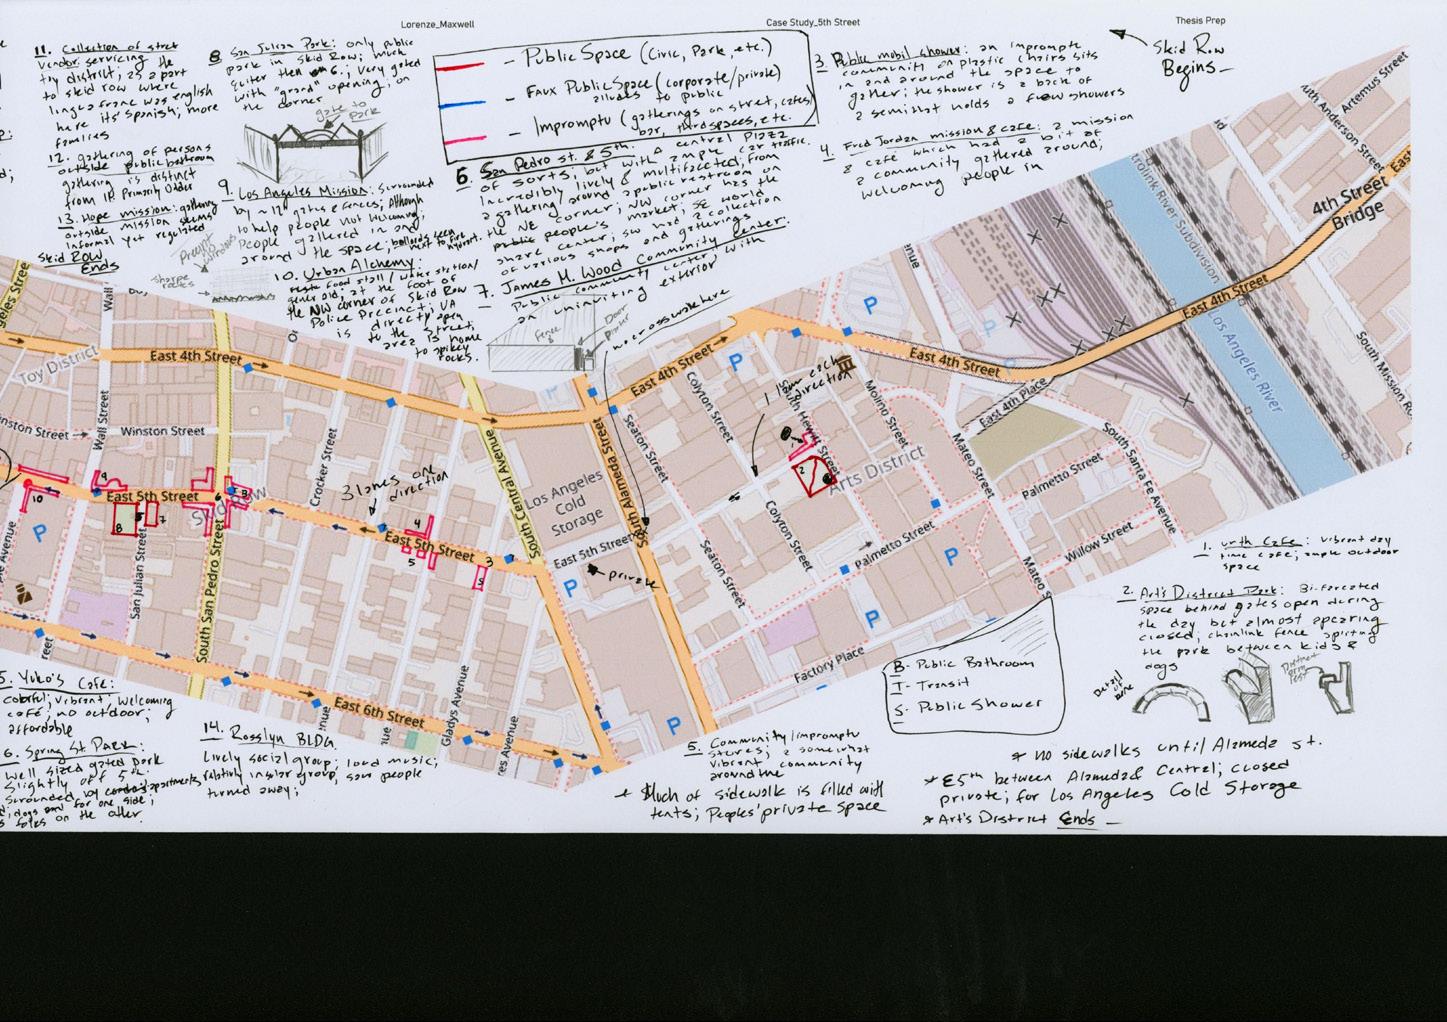 Lorenze_Maxwell
Case Study_5th Street
Thesis Prep
11. Collection of stret
vendor: servicing the
toy district; as a part
to skid row where
lingua franc was english
here its spanish, more
families
12. gathering of persons
outside public bathroom
gathering is distinct
from 11. Primarily Older
13. Hope mission: gathering
outside mission seems
informal yet regulated
Skid Row
Ends
8. San Julian Park: only public
park in Skid Row; much
quiter then 6.; very gated
with "grand" opening, on
the corner
gate to
Park
9. Los Angeles Mission: surrounded
by ~12' gates & fences; Although
to help people not welcoming;
People gathered in and
around the space; bollards been
next to fire hydrant.
10. Urban Alchemy:
food stall / water station/
gener aid; at the foot of
the NW corner of Skid Row
Police Precinct; UA
is directly open
to the street,
area is home
to spikey
rocks.
Precinct
windows
Sharpe
rocks
- Public Space (Civic, Park, etc.)
- Faux Public Space (corporate/private)
alludes to public
- Impromptu (gatherings on stret, cafes)
bar, thirdspaces, etc.
6. San Pedro st. & 5th. A central Plaza
of sorts, but with ample car traffic.
Incredibly lively & multifaceted; from
a gathering around a public restroom on
the NE corner; NW corner has the
people's market; SE world
share center; SW had a collection
of various shops and gatherings
7. James M. Wood Community Center:
Public community center, with
an uninviting exterior
Fence
Door
no crosswalk here
3. Public mobil shower: an impromptu
community on plastic chairs sits
in and around the space to
gather; the shower is a back of
a semi that holds a few showers
4. Fred Jordan mission & cafe: a mission
& cafe which had a bit of
a community gathered around;
welcoming people in
Skid Row
Begins -
Toy District
East 4th Street
Winston Street
Winston Street
Wall Street
Crocker Street
East 5th Street
Skid Row
San Julian Street
South San Pedro Street
3 lanes one
direction
East 5th Street
South Central Avenue
Los Angeles
Cold
Storage
East 5th Street
private
South Alameda Street
East 4th Street
Seaton Street
Seaton Street
Colyton Street
Colyton Street
1 lane each
direction
Molino Street
Arts District
Mateo Street
East 4th Street
East 4th Place
Palmetto Street
Palmetto Street
Willow Street
South Santa Fe Avenue
Factory Place
4th Street
Bridge
East 4th Street
Los Angeles River
Metrolink River Subdivision
South Anderson Street
Artemus Street
South Mission Ro
Gladys Avenue
East 6th Street
1. Urth Cafe: vibrant day
time cafe; ample outdoor
space
2. Art's District Park: Bi-forcated
space behind gates open during
the day but almost apearing
closed; chainlink fence spliting
the park between kids &
dogs
B - Public Bathroom
T - Transit
S - Public Shower
5. Yuko's Cafe:
colorful; vibrant, welcoming
café; no outdoor;
affordable
6. Spring St Park:
Well sized gated park
slightly off 5th.
14. Rosslyn BLDG.
Lively social group; loud music;
relativly insular group, saw people
turned away;
5. Community/impromptu
stores; a somewhat
vibrant community
around the
* Much of sidewalk is filled with
tents; Peoples' private space
* no sidewalks until Alameda st.
* E5th between Alameda & Central; closed
private; for Los Angeles Cold Storage
* Art's District Ends -